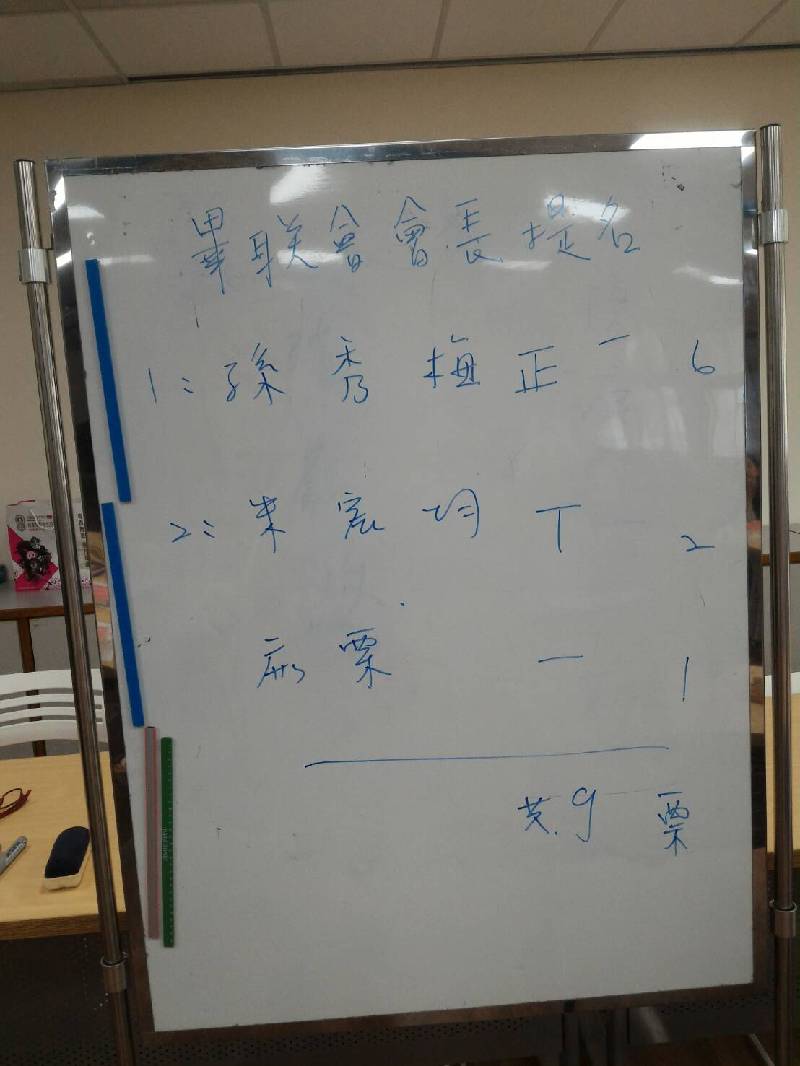 畢联會會長提名
1: 孫秀梅 正一 6
2: 朱宸均 丅 2
廢票 一 1
共 9 票